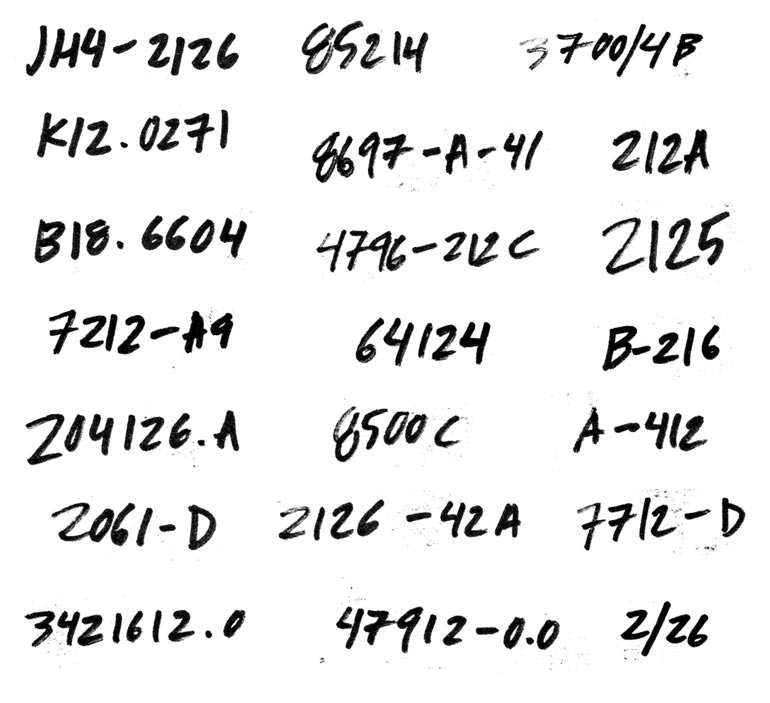 JH4-2126 85214 3700/4B
K12.0271 8697-A-41 212A
B18.6604 4796-212C 2125
7212-A9 64124 B-216
204126.A 8500C A-412
2061-D 2126-42A 7712-D
3421612.0 47912-0.0 2/26